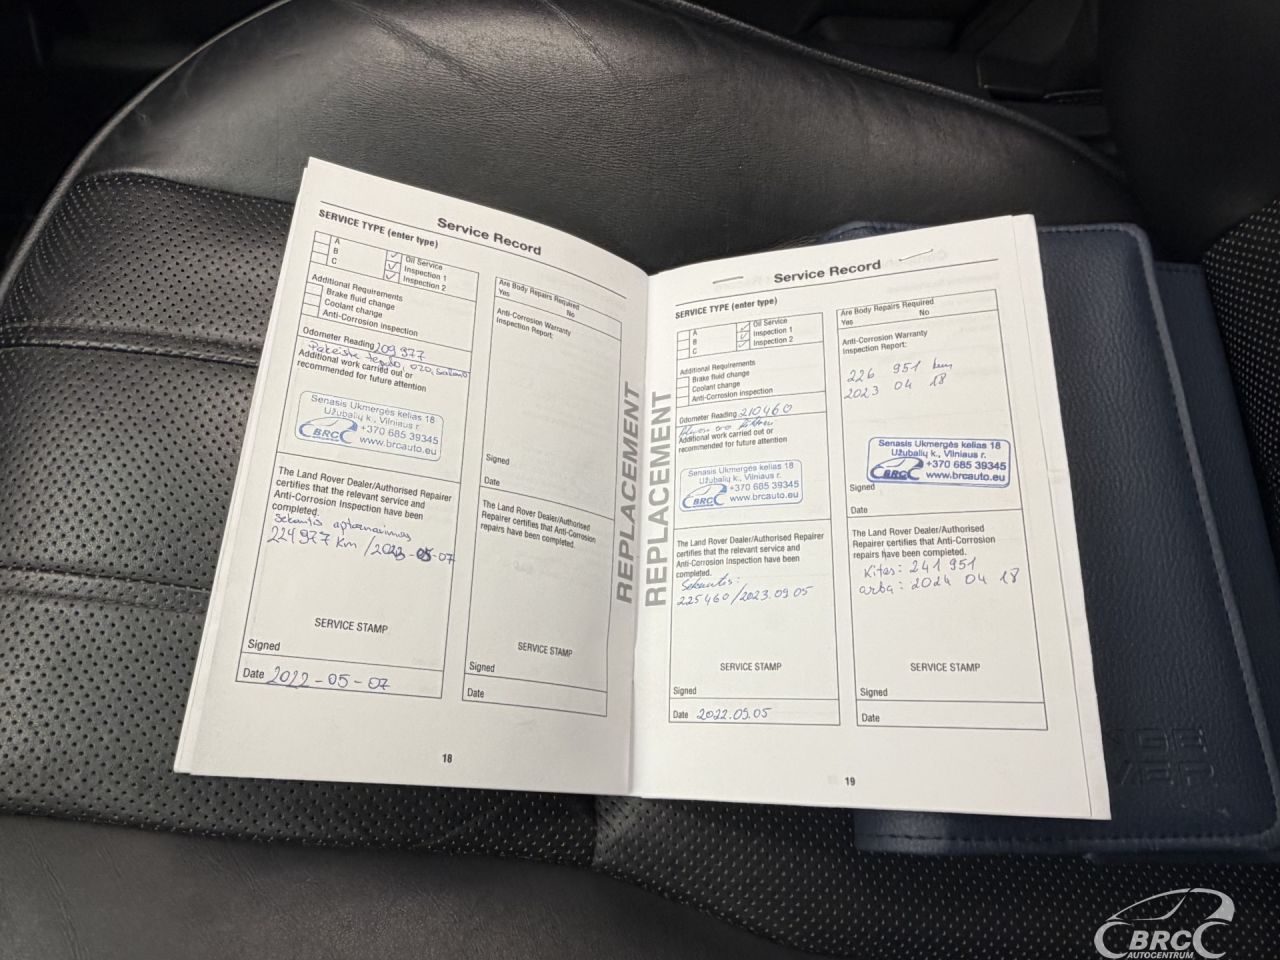 Service Record
SERVICE TYPE (enter type)
A
B
C
Oil Service
Inspection 1
Inspection 2
Additional Requirements
Brake fluid change
Coolant change
Anti-Corrosion inspection
Odometer Reading 209 977
Pakeista tepalo, oro, salono
Additional work carried out or
recommended for future attention
Senasis Ukmergės kelias 18
Užubalių k., Vilniaus r.
+370 685 39345
BRC www.brcauto.eu
The Land Rover Dealer/Authorised Repairer
certifies that the relevant service and
Anti-Corrosion Inspection have been
completed.
Sekantis aptarnavimas
224977 km / 2023-05-07
SERVICE STAMP
Signed
Date 2022-05-07
Are Body Repairs Required
Yes No
Anti-Corrosion Warranty
Inspection Report:
Signed
Date
The Land Rover Dealer/Authorised
Repairer certifies that Anti-Corrosion
repairs have been completed.
SERVICE STAMP
Signed
Date
REPLACEMENT
18
Service Record
SERVICE TYPE (enter type)
A
B
C
Oil Service
Inspection 1
Inspection 2
Additional Requirements
Brake fluid change
Coolant change
Anti-Corrosion inspection
Odometer Reading 210460
Additional work carried out or
recommended for future attention
Senasis Ukmergės kelias 18
Užubalių k., Vilniaus r.
+370 685 39345
BRC www.brcauto.eu
The Land Rover Dealer/Authorised Repairer
certifies that the relevant service and
Anti-Corrosion Inspection have been
completed.
Sekantis:
225460/2023.09.05
SERVICE STAMP
Signed
Date 2022.09.05
Are Body Repairs Required
Yes No
Anti-Corrosion Warranty
Inspection Report:
226 951 km
2023 04 18
Senasis Ukmergės kelias 18
Užubalių k., Vilniaus r.
+370 685 39345
BRC www.brcauto.eu
Signed
Date
The Land Rover Dealer/Authorised
Repairer certifies that Anti-Corrosion
repairs have been completed.
Kitas: 241 951
arba: 2024 04 18
SERVICE STAMP
Signed
Date
REPLACEMENT
19
BRC
AUTOCENTRUM